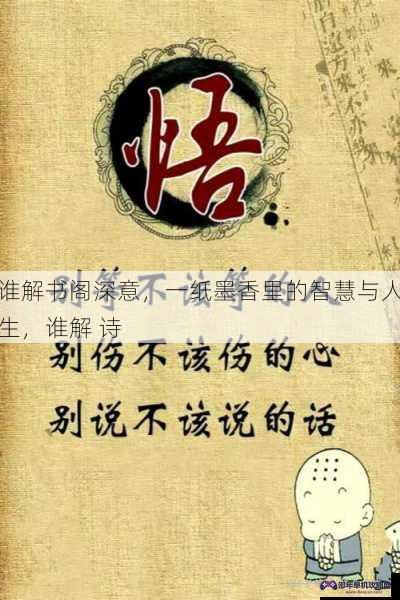 悟
别等不该等的人
谁解书阁深意，一纸墨香里的智慧与人
生，谁解 诗
别伤不该伤的心
别说不该说的话